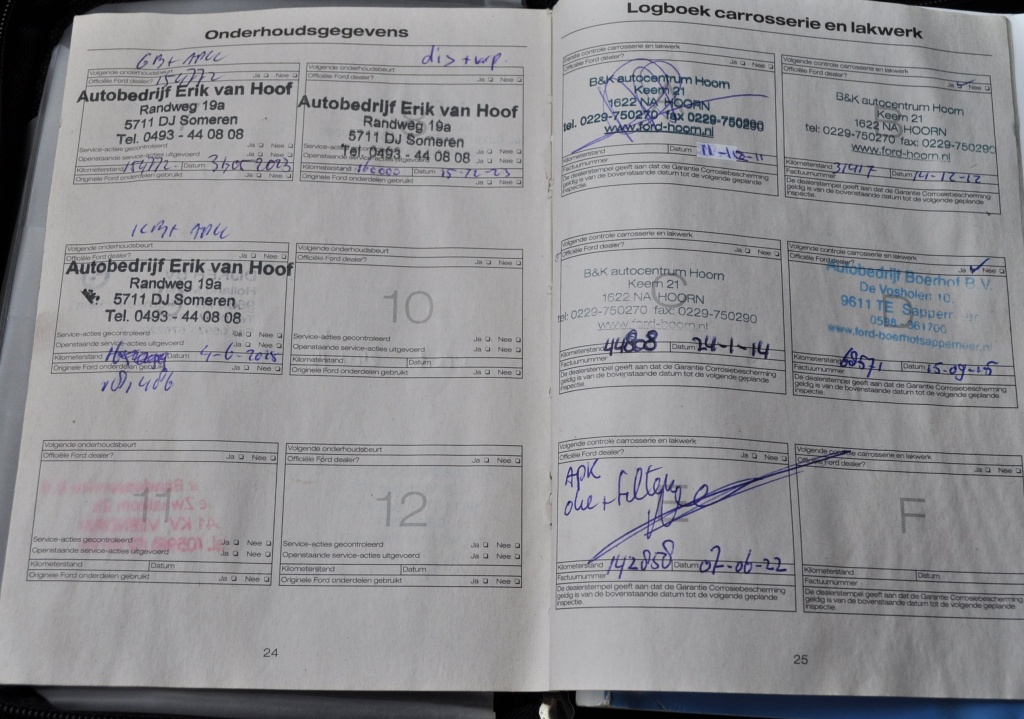 Onderhoudsgegevens
GB+ APK
Volgende onderhoudsbeurt
Officiële Ford dealer? Ja Nee
154772
Autobedrijf Erik van Hoof
Randweg 19a
5711 DJ Someren
Tel. 0493 - 44 08 08
Service-acties gecontroleerd
Openstaande service-acties uitgevoerd
Kilometerstand 154772 Datum 2023
Originele Ford onderdelen gebruikt Ja Nee
dis + wp.
Volgende onderhoudsbeurt
Officiële Ford dealer? Ja Nee
Autobedrijf Erik van Hoof
Randweg 19a
5711 DJ Someren
Tel. 0493 - 44 08 08
Kilometerstand Datum 15-12-23
Originele Ford onderdelen gebruikt Ja Nee
KB+ APK
Volgende onderhoudsbeurt
Officiële Ford dealer?
Autobedrijf Erik van Hoof
Randweg 19a
5711 DJ Someren
Tel. 0493 - 44 08 08
Service-acties gecontroleerd Ja Nee
Openstaande service-acties uitgevoerd Ja Nee
Kilometerstand Datum 4-6-2025
Originele Ford onderdelen gebruikt Ja Nee
Volgende onderhoudsbeurt
Officiële Ford dealer? Ja Nee
10
Service-acties gecontroleerd Ja Nee
Openstaande service-acties uitgevoerd Ja Nee
Kilometerstand Datum
Originele Ford onderdelen gebruikt Ja Nee
Volgende onderhoudsbeurt
Officiële Ford dealer? Ja Nee
11
Service-acties gecontroleerd Ja Nee
Openstaande service-acties uitgevoerd Ja Nee
Kilometerstand Datum
Originele Ford onderdelen gebruikt Ja Nee
Volgende onderhoudsbeurt
Officiële Ford dealer? Ja Nee
12
Service-acties gecontroleerd Ja Nee
Openstaande service-acties uitgevoerd Ja Nee
Kilometerstand Datum
Originele Ford onderdelen gebruikt Ja Nee
24
Logboek carrosserie en lakwerk
controle carrosserie en lakwerk
Officiële Ford dealer? Ja Nee
B&K autocentrum Hoorn
Keern 21
1622 NA HOORN
tel. 0229-750270 fax 0229-750290
www.ford-hoorn.nl
Kilometerstand Datum 12-11
Factuurnummer
De dealerstempel geeft aan dat de Garantie Corrosiebescherming
geldig is van de bovenstaande datum tot de volgende geplande
inspectie.
Volgende controle carrosserie en lakwerk
Officiële Ford dealer? Ja Nee
B&K autocentrum Hoorn
Keern 21
1622 NA HOORN
tel: 0229-750270 fax: 0229-750290
www.ford-hoorn.nl
Kilometerstand 31417 Datum 14-12-12
Factuurnummer
De dealerstempel geeft aan dat de Garantie Corrosiebescherming
geldig is van de bovenstaande datum tot de volgende geplande
inspectie.
Volgende controle carrosserie en lakwerk
Officiële Ford dealer? Ja Nee
B&K autocentrum Hoorn
Keern 21
1622 NA HOORN
tel: 0229-750270 fax: 0229-750290
www.ford-hoorn.nl
Kilometerstand 44808 Datum 24-1-14
Factuurnummer
De dealerstempel geeft aan dat de Garantie Corrosiebescherming
geldig is van de bovenstaande datum tot de volgende geplande
inspectie.
Volgende controle carrosserie en lakwerk
Officiële Ford dealer? Ja Nee
Autobedrijf Boerhof B.V.
De Vosholen 10
9611 TE Sappemeer
www.ford-boerhofsappemeer.nl
Kilometerstand 68571 Datum 15-09-15
Factuurnummer
De dealerstempel geeft aan dat de Garantie Corrosiebescherming
geldig is van de bovenstaande datum tot de volgende geplande
inspectie.
Volgende controle carrosserie en lakwerk
Officiële Ford dealer? Ja Nee
APK
olie + filters
E
Kilometerstand 142858 Datum 07-06-22
Factuurnummer
De dealerstempel geeft aan dat de Garantie Corrosiebescherming
geldig is van de bovenstaande datum tot de volgende geplande
inspectie.
Volgende controle carrosserie en lakwerk
Officiële Ford dealer? Ja Nee
F
Kilometerstand Datum
Factuurnummer
De dealerstempel geeft aan dat de Garantie Corrosiebescherming
geldig is van de bovenstaande datum tot de volgende geplande
inspectie.
25